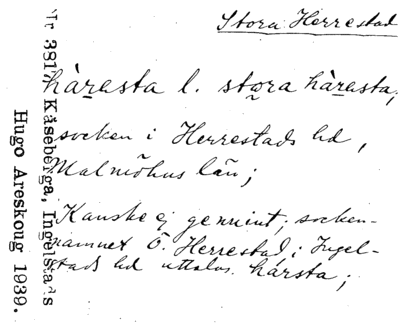 Stora Herrestad
hàrasta l. stora hàrasta,
socken i Herrestads hd,
Malmöhus län;
Kanske ej genuint; socken-
namnet Ö. Herrestad, i Ingel-
stads hd uttalas hàrsta;
Nr 3817 Kåseberga, Ingelstads
Hugo Areskoug 1939.